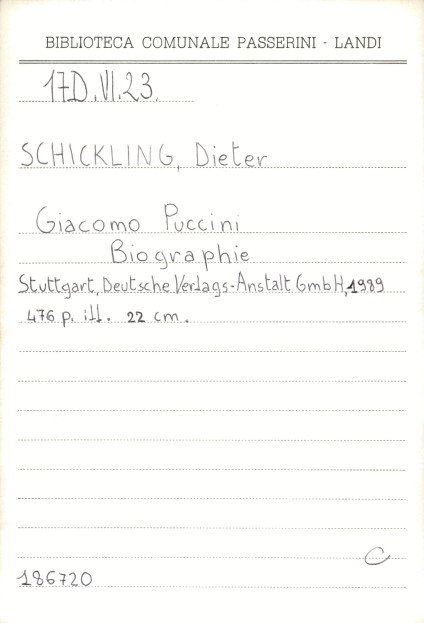 BIBLIOTECA COMUNALE PASSERINI - LANDI
17D.VI.23.
SCHICKLING, Dieter
Giacomo Puccini
Biographie
Stuttgart, Deutsche Verlags-Anstalt GmbH, 1989
476 p. ill. 22 cm.
C
186720